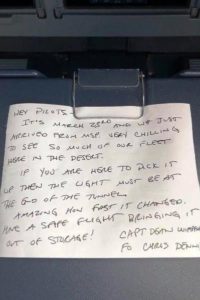 HEY PILOTS-
IT'S MARCH 23RD AND WE JUST
ARRIVED FROM MSP. VERY CHILLING
TO SEE SO MUCH OF OUR FLEET
HERE IN THE DESERT.
IF YOU ARE HERE TO PICK IT
UP THEN THE LIGHT MUST BE AT
THE END OF THE TUNNEL.
AMAZING HOW FAST IT CHANGED.
HAVE A SAFE FLIGHT BRINGING IT
OUT OF STORAGE!
CAPT
FO CHRIS